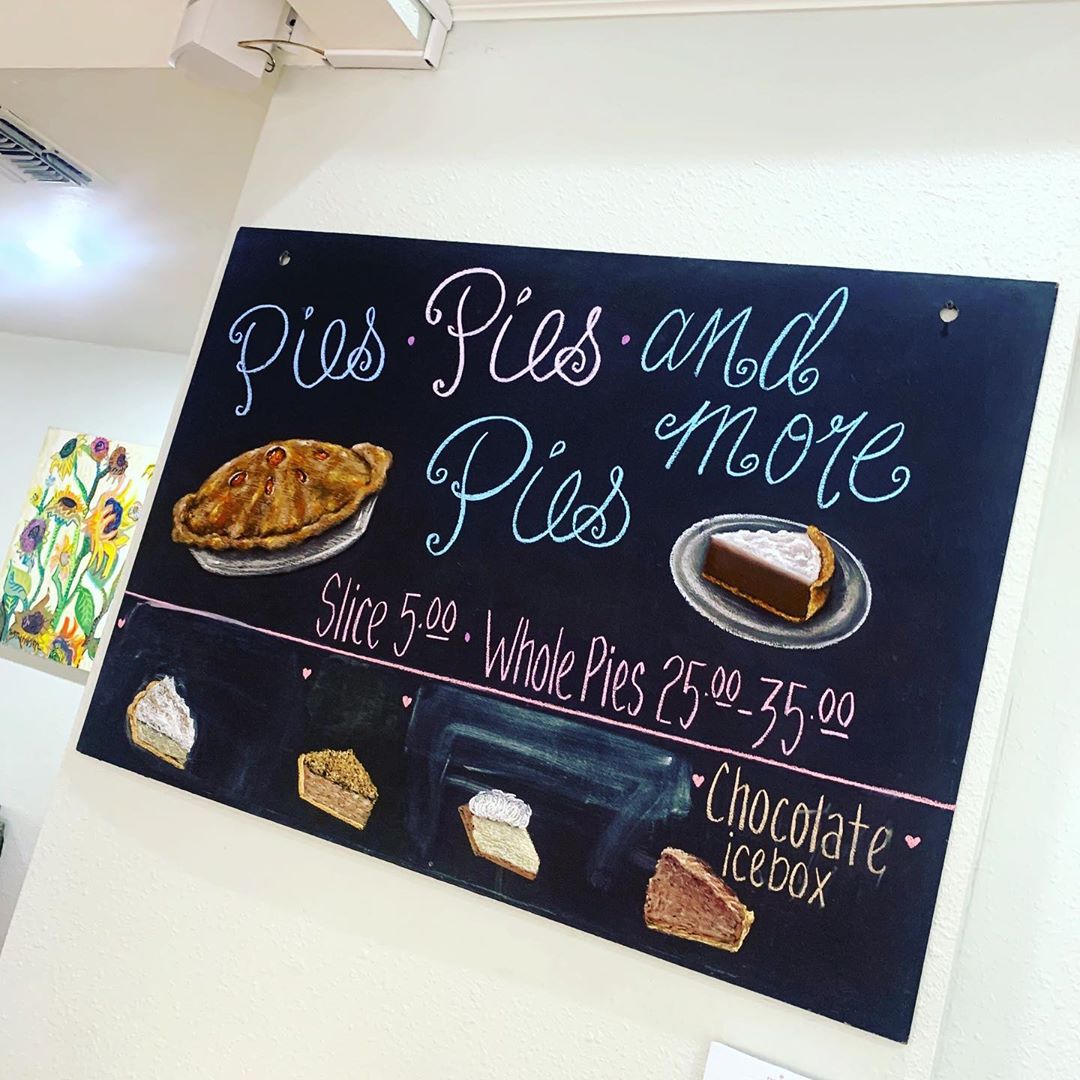 Pies · Pies · and
more
Pies
Slice 5.00 · Whole Pies 25.00-35.00
Chocolate
icebox